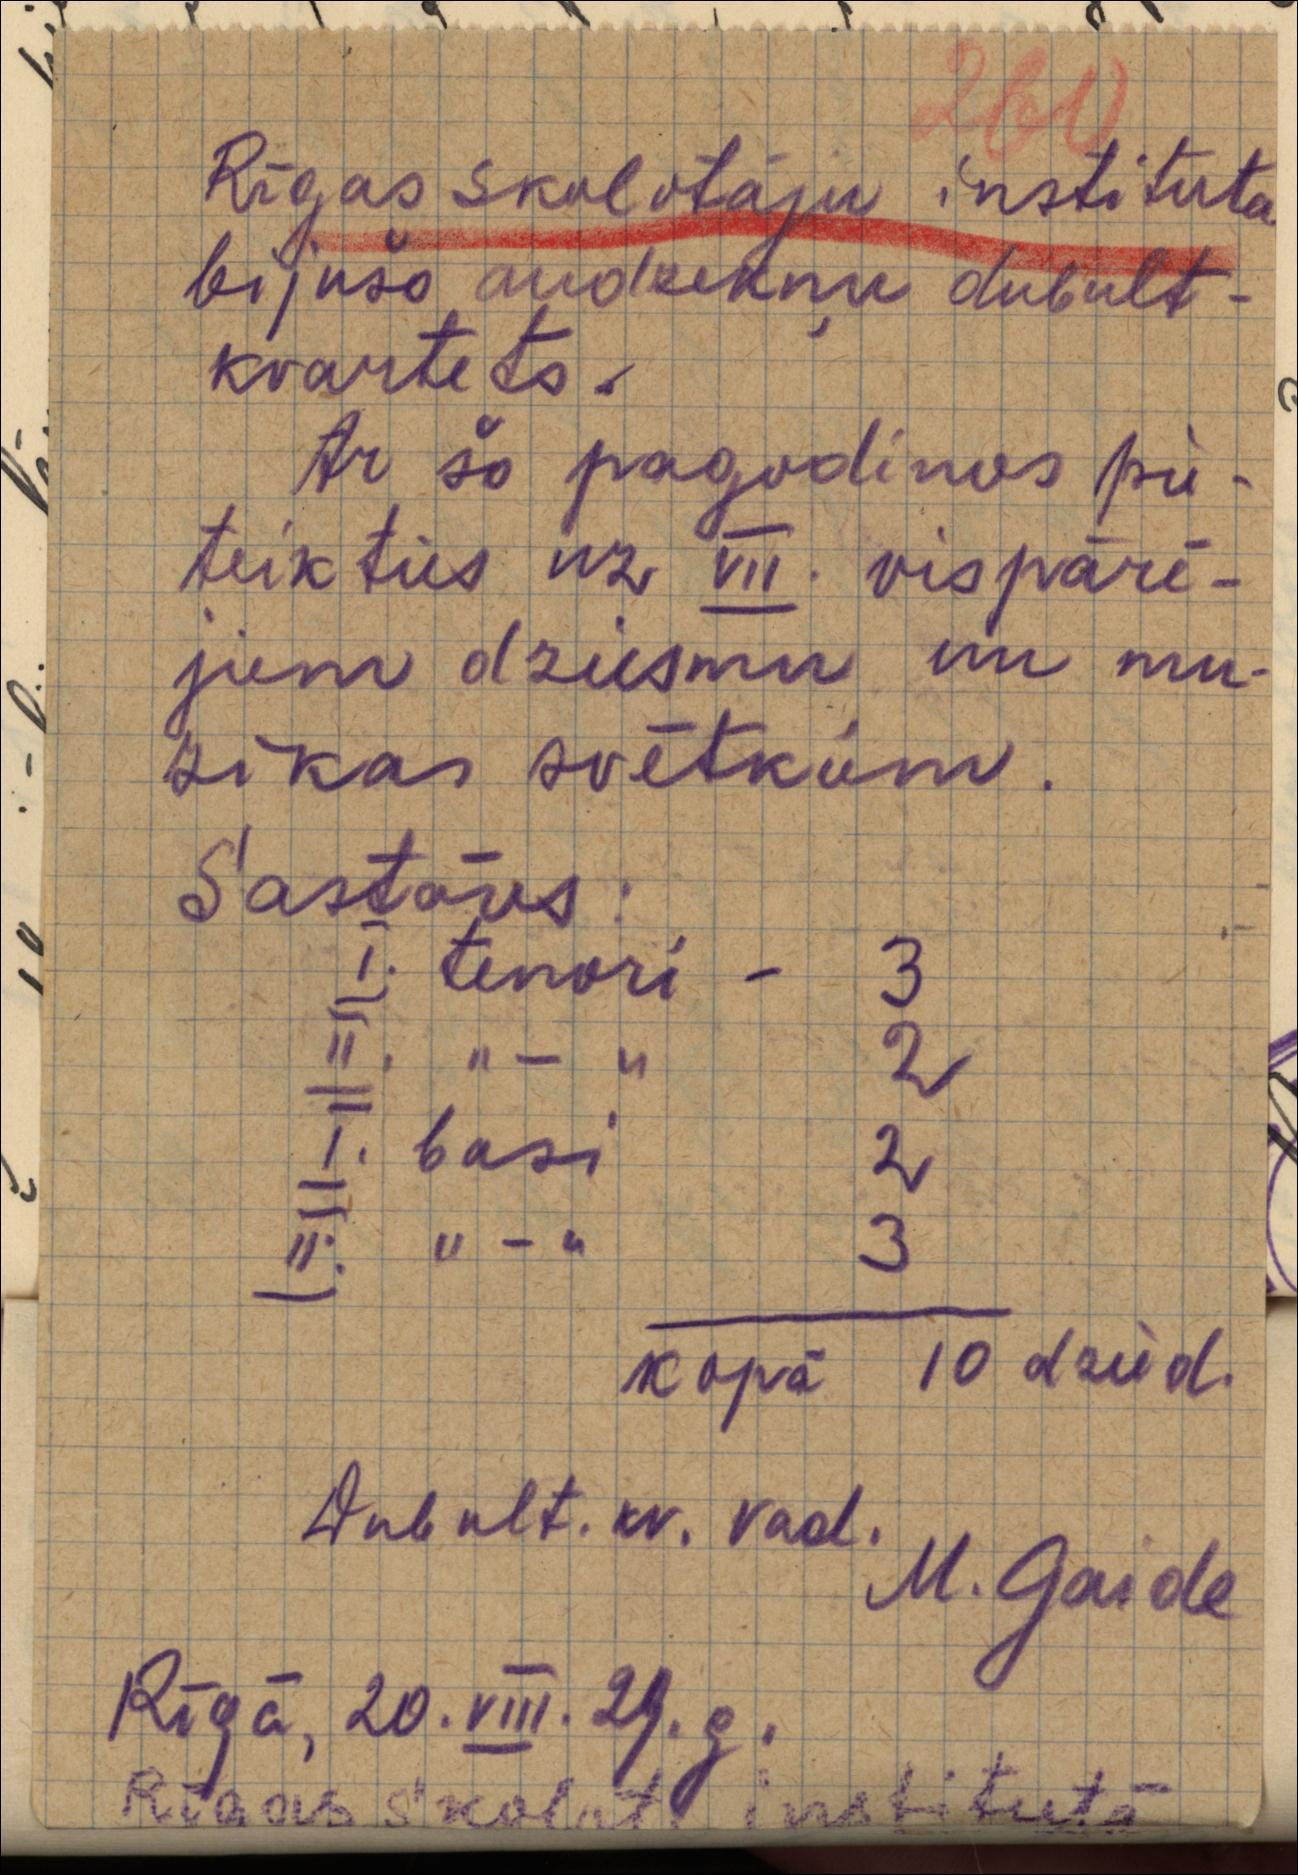 260
Rīgas skolotāju instituta
bijušo audzekņu dubult-
kvartets.
Ar šo pagodinos pie-
teikties uz VII. vispārē-
jiem dziesmu un mu-
zikas svētkiem.
Sastāvs:
I. tenori - 3
II. " - " 2
I. basi 2
II. " - " 3
kopā 10 dzied.
Dubult. kv. vad.
M. Gaide
Rīgā, 20. VIII. 29. g.
Rīgas skolot. institutā